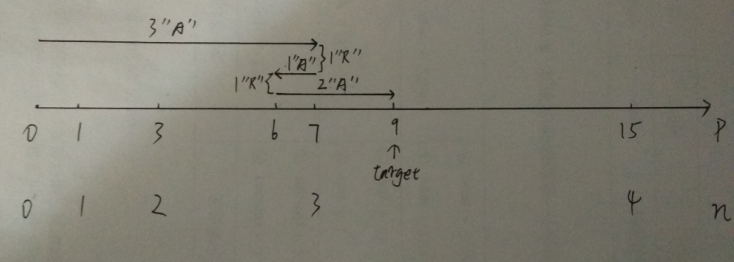 3"A"
1"A" 1"R"
1"R" 2"A"
0 1 3 6 7 9 15 P
target
0 1 2 3 4 n